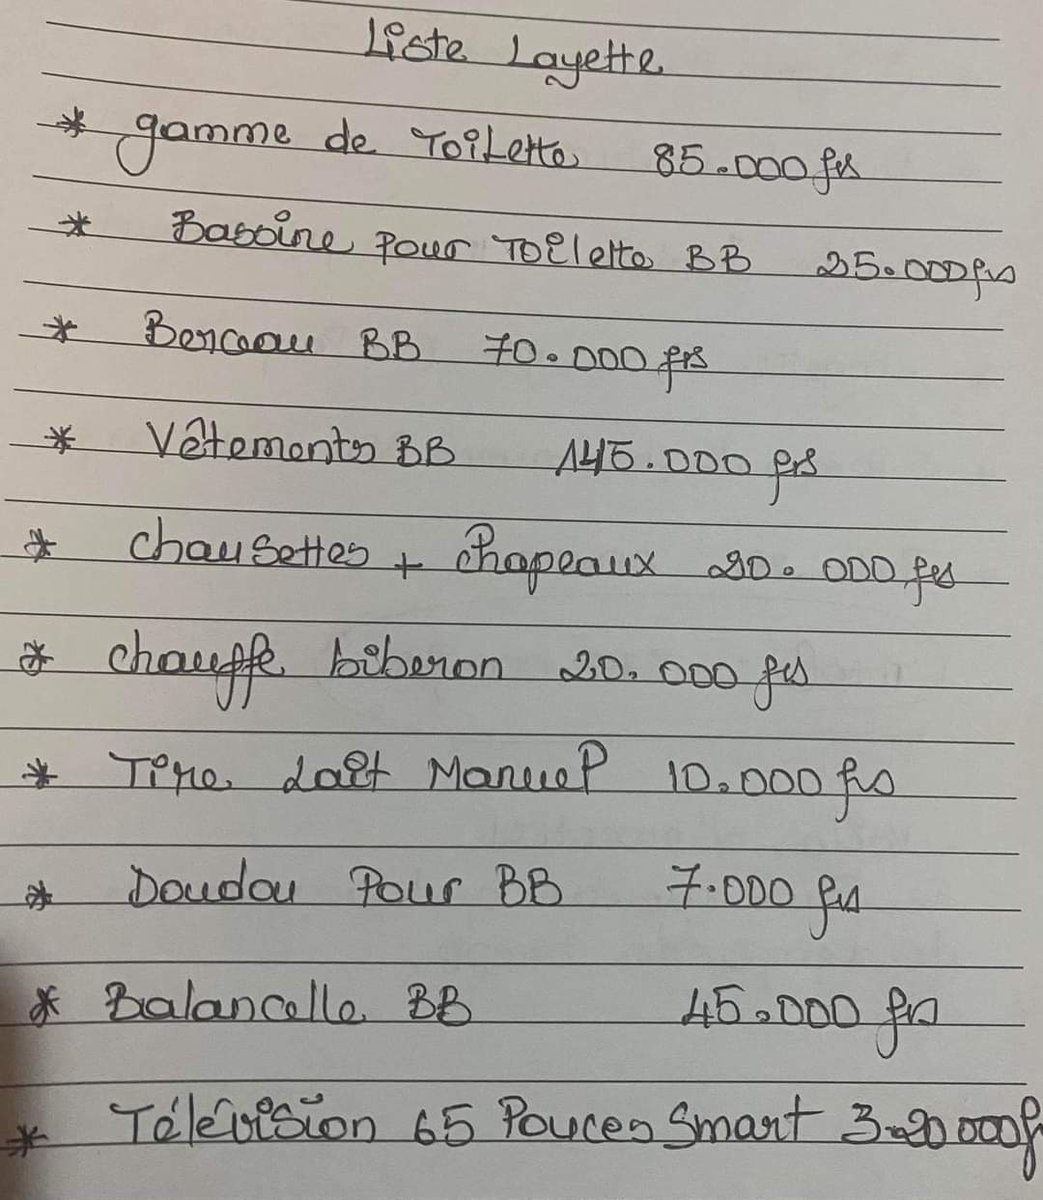 Liste Layette
* gamme de Toilette 85.000 frs
* Bassine Pour Toilette BB 25.000 frs
* Berceau BB 70.000 frs
* Vêtements BB 145.000 frs
* Chaussettes + Chapeaux 20.000 frs
* Chauffe biberon 20.000 frs
* Tire Lait Manuel 10.000 frs
* Doudou Pour BB 7.000 frs
* Balancelle BB 45.000 frs
* Télévision 65 Pouces Smart 320 000 f